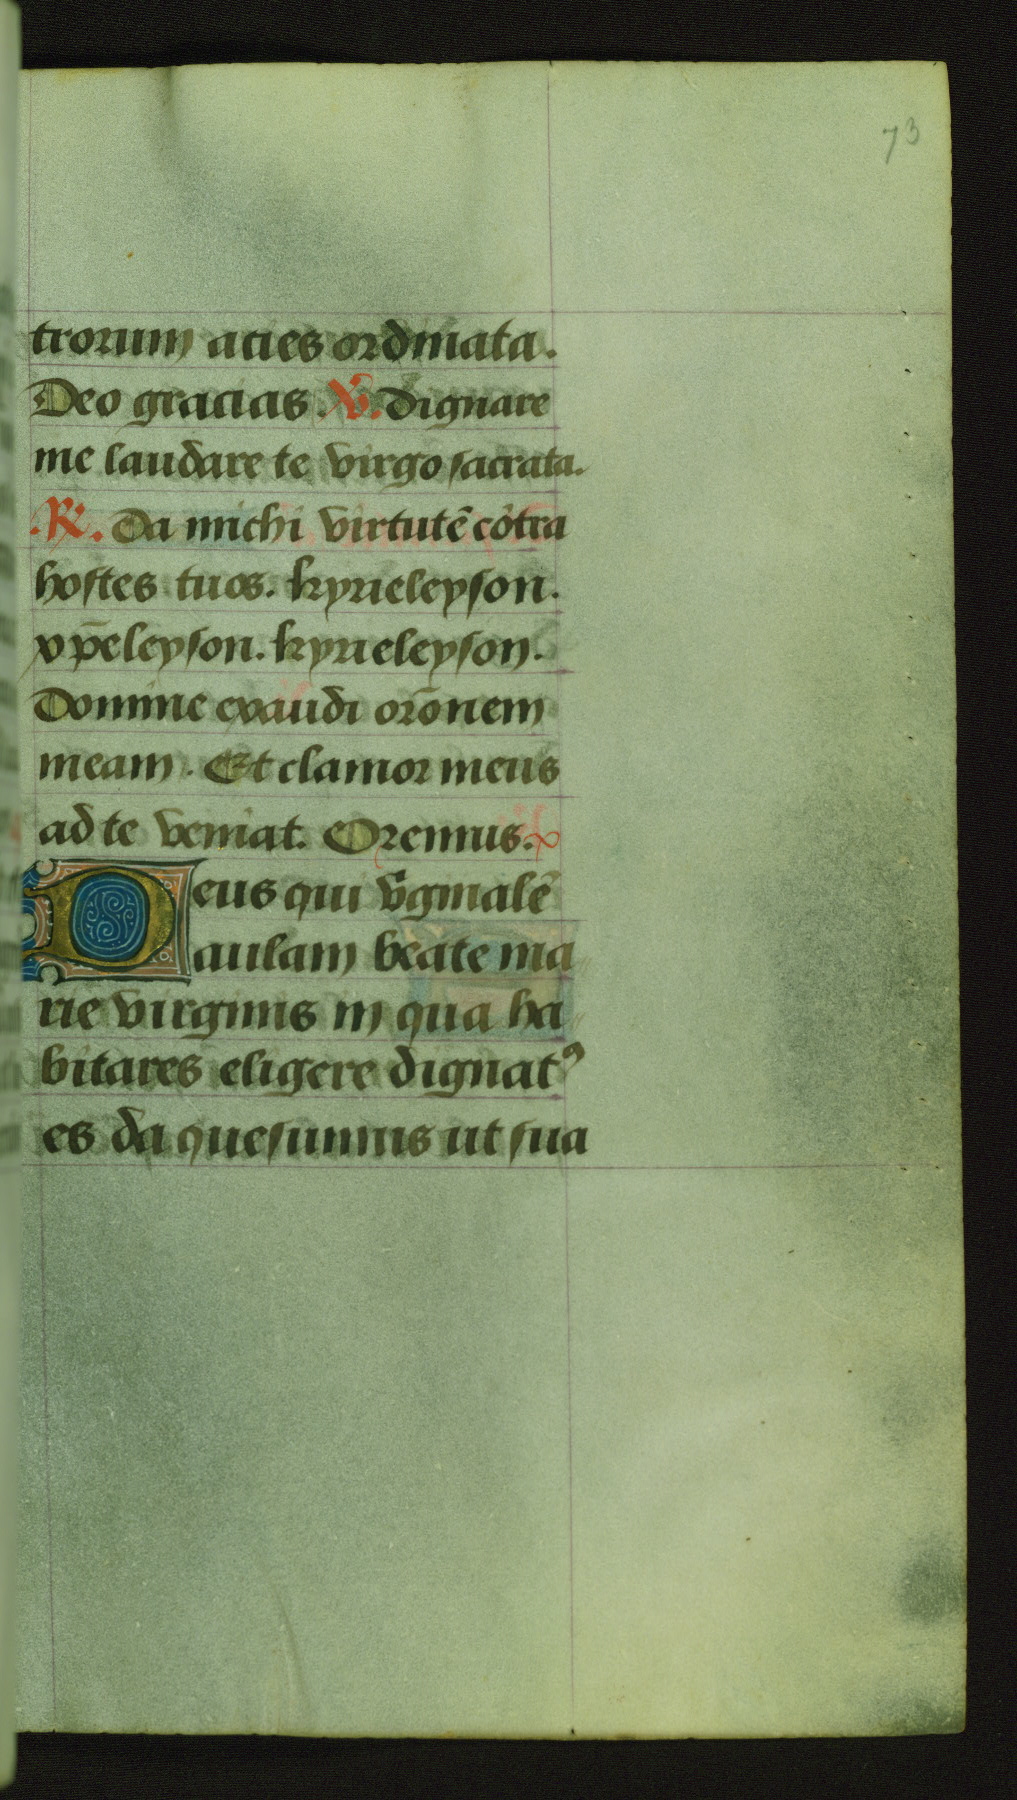 73
trorum acies ordinata.
Deo gracias. V. dignare
me laudare te virgo sacrata.
.R. Da michi virtutē cōtra
hostes tuos. kyrieleyson.
xp̄eleyson. kyrieleyson.
Domine exaudi orōnem
meam. Et clamor meus
ad te veniat. Oremus.
Deus qui v̄ginalē
aulam beate ma
rie virginis in qua ha
bitares eligere dignatꝰ
es da quesumus ut sua